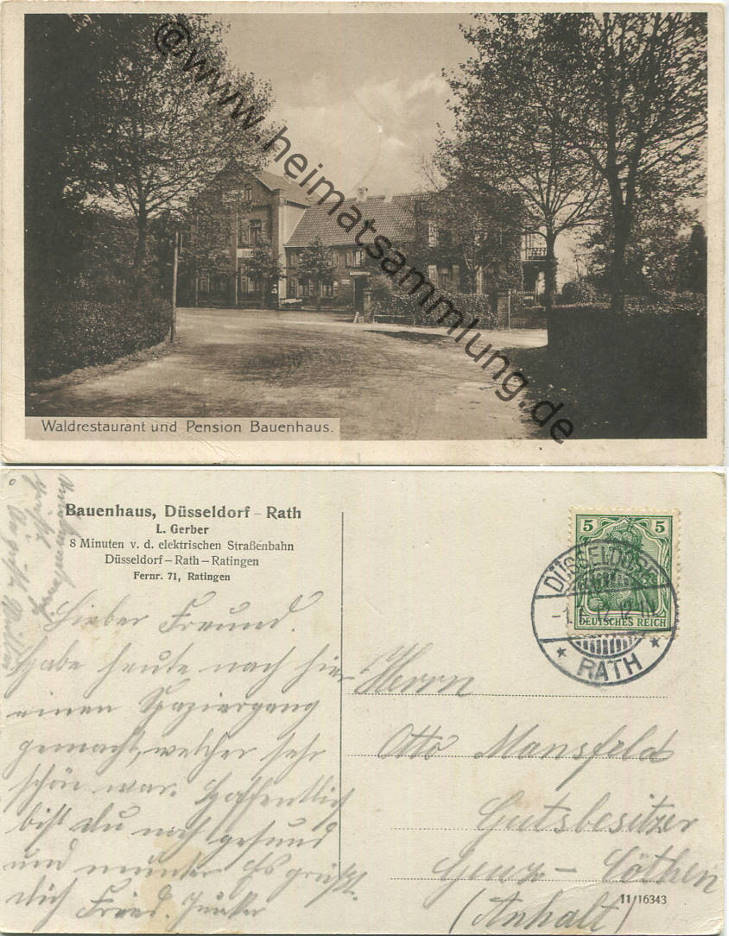 @www.heimatsammlung.de
Waldrestaurant und Pension Bauenhaus.
Bauenhaus, Düsseldorf - Rath
L. Gerber
8 Minuten v. d. elektrischen Straßenbahn
Düsseldorf - Rath - Ratingen
Fernr. 71, Ratingen
Lieber Freund.
Habe heute nach hier
einen Spaziergang
gemacht, welcher sehr
schön war. Hoffentlich
bist du noch gesund
und munter. Es grüßt
dich Fried. Junker
5 5
DEUTSCHES REICH
DÜSSELDORF
RATH
Herrn
Otto Mansfeld
Gutsbesitzer
Cöthen
(Anhalt)
11/16343